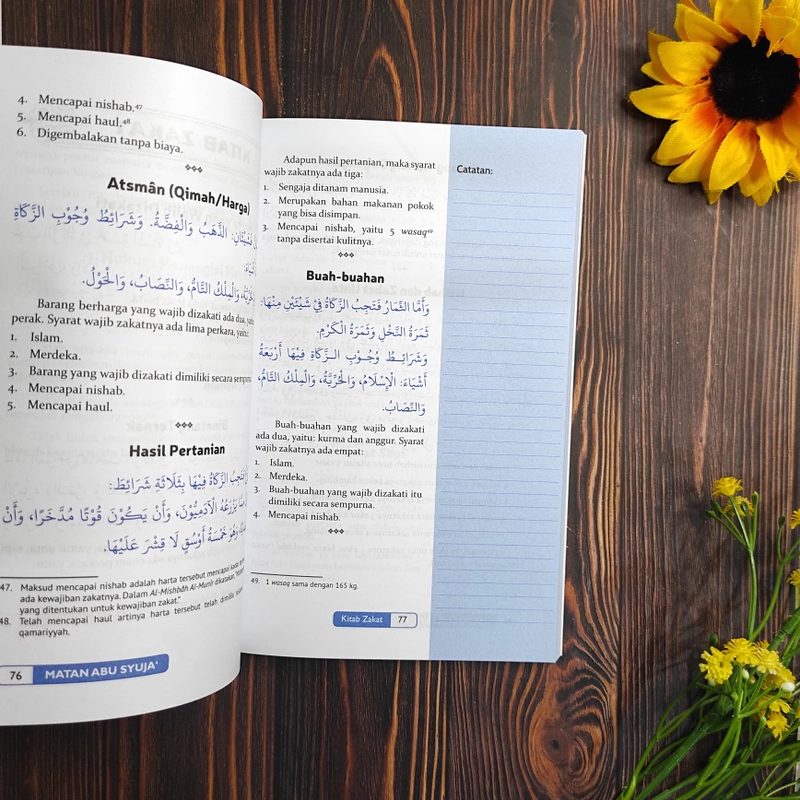 4. Mencapai nishab.⁴⁷
5. Mencapai haul.⁴⁸
6. Digembalakan tanpa biaya.
Atsmân (Qimah/Harga)
الذَّهَبُ وَالْفِضَّةُ. وَشَرَائِطُ وُجُوْبِ الزَّكَاةِ
وَالْمِلْكُ التَّامُّ، وَالنِّصَابُ، وَالْحَوْلُ.
Barang berharga yang wajib dizakati ada dua,
perak. Syarat wajib zakatnya ada lima perkara, yaitu:
1. Islam.
2. Merdeka.
3. Barang yang wajib dizakati dimiliki secara
4. Mencapai nishab.
5. Mencapai haul.
Hasil Pertanian
الزَّكَاةُ فِيْهَا بِثَلَاثَةِ شَرَائِطَ:
يَزْرَعُهُ الْآدَمِيُّوْنَ، وَأَنْ يَكُوْنَ قُوْتًا مُدَّخَرًا، وَأَنْ
وَهُوَ خَمْسَةُ أَوْسُقٍ لَا قِشْرَ عَلَيْهَا.
47. Maksud mencapai nishab adalah harta tersebut mencapai
ada kewajiban zakatnya. Dalam Al-Mishbâh Al-Munîr dikatakan,
yang ditentukan untuk kewajiban zakat."
48. Telah mencapai haul artinya harta tersebut telah dimiliki
qamariyyah.
76 MATAN ABU SYUJA'
Adapun hasil pertanian, maka syarat
wajib zakatnya ada tiga:
1. Sengaja ditanam manusia.
2. Merupakan bahan makanan pokok
yang bisa disimpan.
3. Mencapai nishab, yaitu 5 wasaq⁴⁹
tanpa disertai kulitnya.
Buah-buahan
وَأَمَّا الثِّمَارُ فَتَجِبُ الزَّكَاةُ فِيْ شَيْئَيْنِ مِنْهَا:
ثَمَرَةُ النَّخْلِ وَثَمَرَةُ الْكَرْمِ.
وَشَرَائِطُ وُجُوْبِ الزَّكَاةِ فِيْهَا أَرْبَعَةُ
أَشْيَاءَ: الْإِسْلَامُ، وَالْحُرِّيَّةُ، وَالْمِلْكُ التَّامُّ،
وَالنِّصَابُ.
Buah-buahan yang wajib dizakati
ada dua, yaitu: kurma dan anggur. Syarat
wajib zakatnya ada empat:
1. Islam.
2. Merdeka.
3. Buah-buahan yang wajib dizakati itu
dimiliki secara sempurna.
4. Mencapai nishab.
49. 1 wasaq sama dengan 165 kg.
Kitab Zakat 77
Catatan: